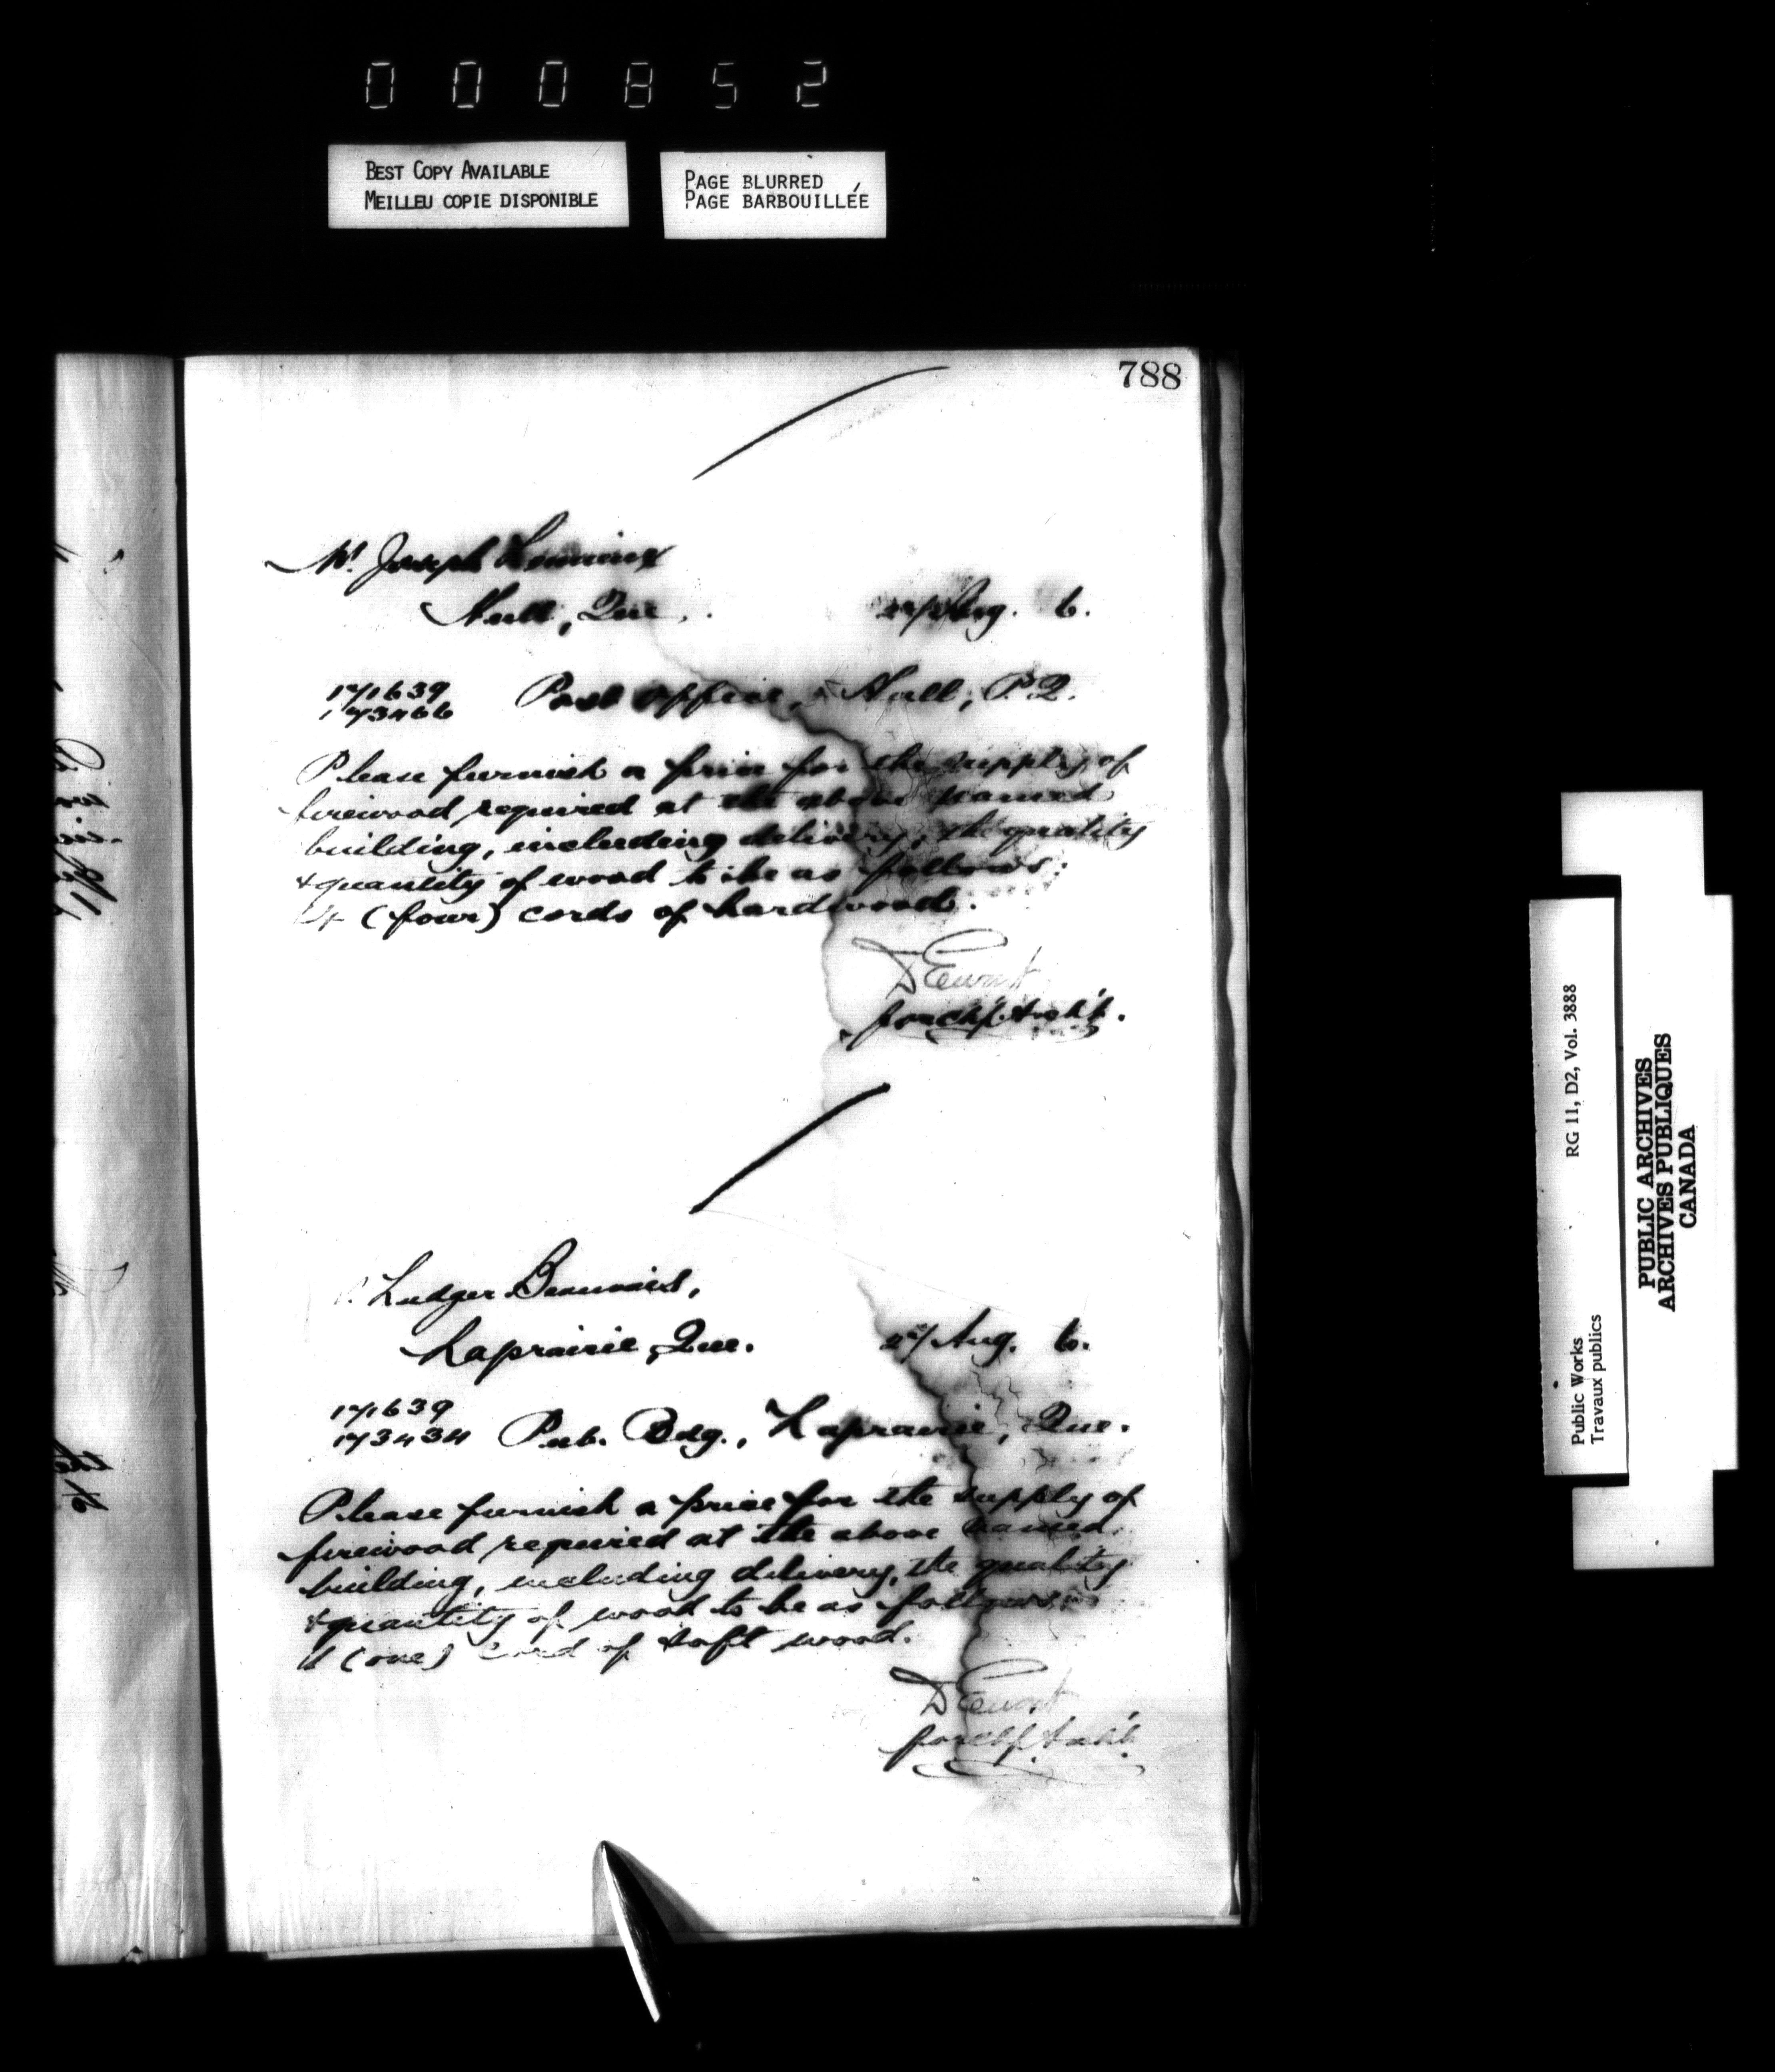 000852
BEST COPY AVAILABLE
MEILLEU COPIE DISPONIBLE
PAGE BLURRED
PAGE BARBOUILLÉE
788
Mr. Joseph
Hull, Que.
Aug. 6.
171639
173466
Post Office, Hull, P.Q.
Please furnish a price for the supply of
firewood required at the above named
building, including delivery, the quality
& quantity of wood to be as follows:
4 (four) cords of hardwood.
D Ewart
for Chf. Archt.
Ludger Beauvais,
Laprairie, Que.
Aug. 6.
171639
173434 Pub. Bdg., Laprairie, Que.
Please furnish a price for the supply of
firewood required at the above named
building, including delivery, the quality
& quantity of wood to be as follows:
1 (one) cord of soft wood.
D Ewart
for Chf. Archt.
Public Works RG 11, D2, Vol. 3888
Travaux publics
PUBLIC ARCHIVES
ARCHIVES PUBLIQUES
CANADA